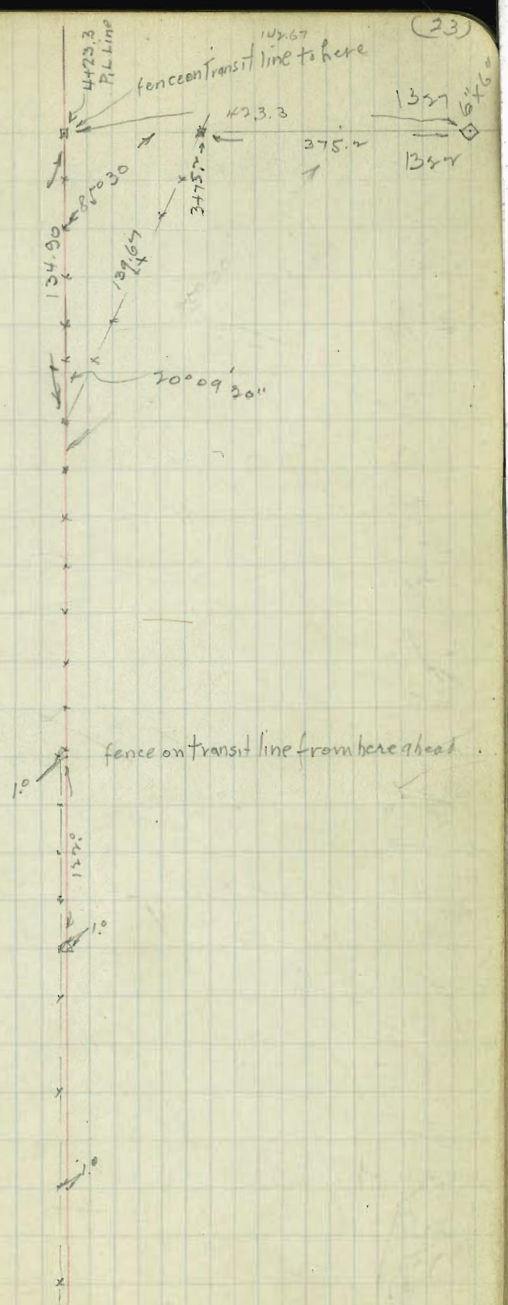 (23)
142.67
4+23.3
P.L Line
fence on Transit line to here
423.3
1327
6"x6"
375.2
1322
3+75.2
85° 30
134.90
139.67
20° 09' 20"
fence on transit line from here ahead.
1.0
122.0
1.0
1.0